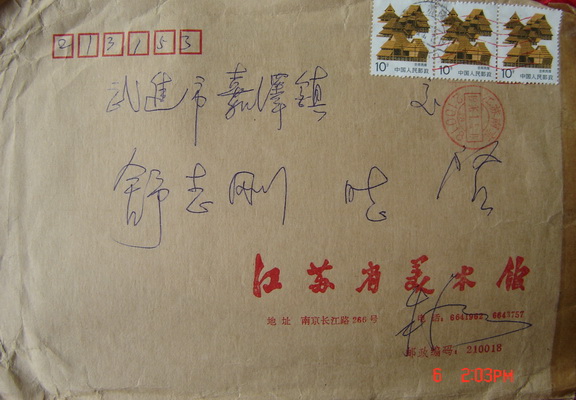 213153
10分 10分 10分
中国人民邮政 中国人民邮政 中国人民邮政
武進市嘉澤鎮
舒志刚
江苏省美术馆
地址 南京长江路266号 电话: 6641962 6643757
邮政编码:210018
6 2:03PM